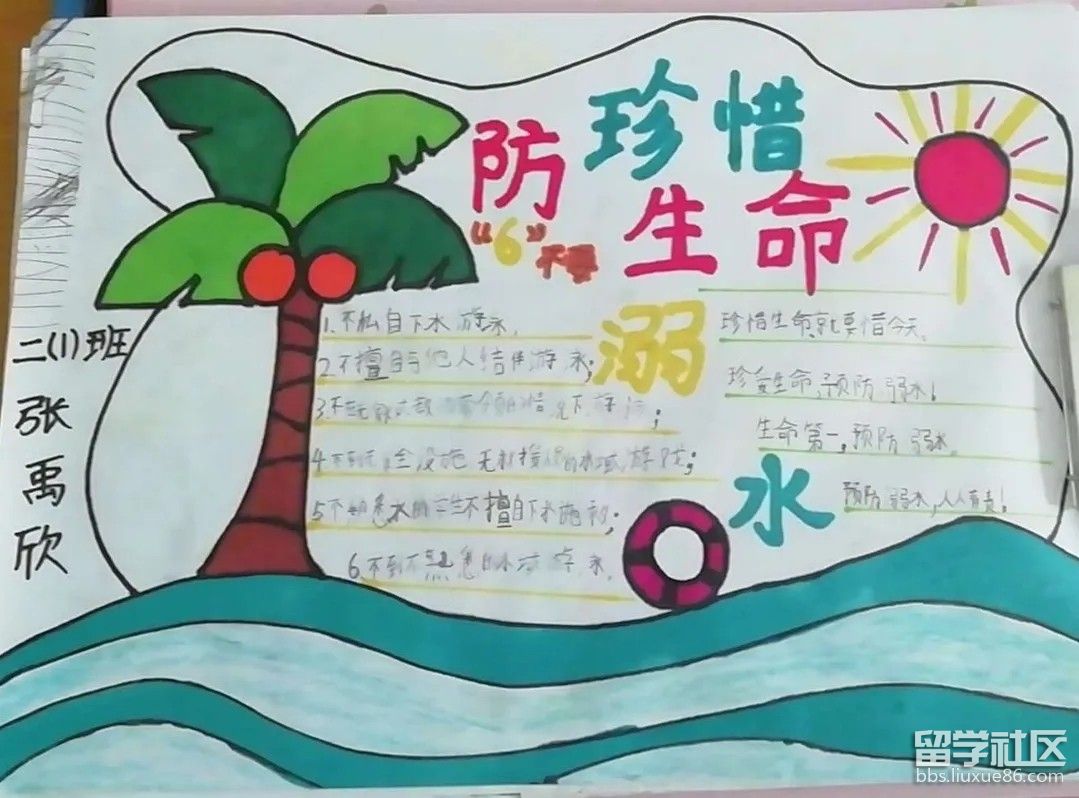 珍惜
生命
防
溺
水
"6"不要
二(1)班
张禹欣
1.不私自下水游泳,
2.不擅自与他人结伴游泳;
3.不在无家
4.不到无 全设施 无救援 的水域游
5.不 悉水 的学生不擅自下水施救;
6.不到不熟悉的水 游泳.
珍惜生命就要惜今天,
珍爱生命,预防溺水!
生命第一,预防溺水.
预防溺水,人人有责!
留学社区
bbs.liuxue86.com